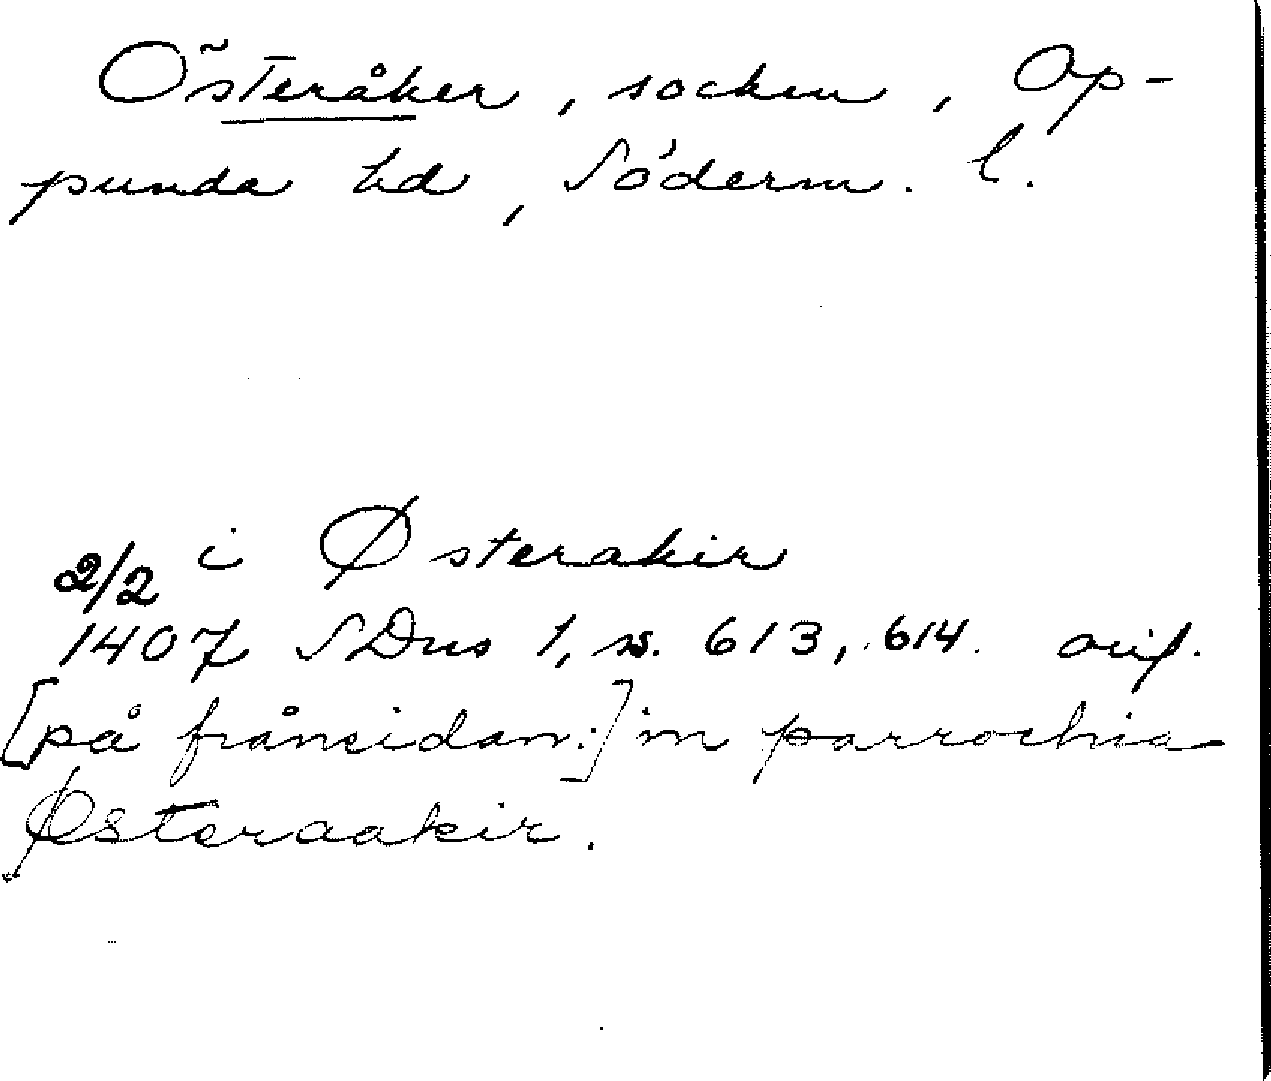 Österåker, socken, Op-
punda hd, Söderm. l.
i Østerakir
2/2
1407 SDns 1, s. 613, 614. orig.
[på frånsidan:] in parrochia
Østeraakir.